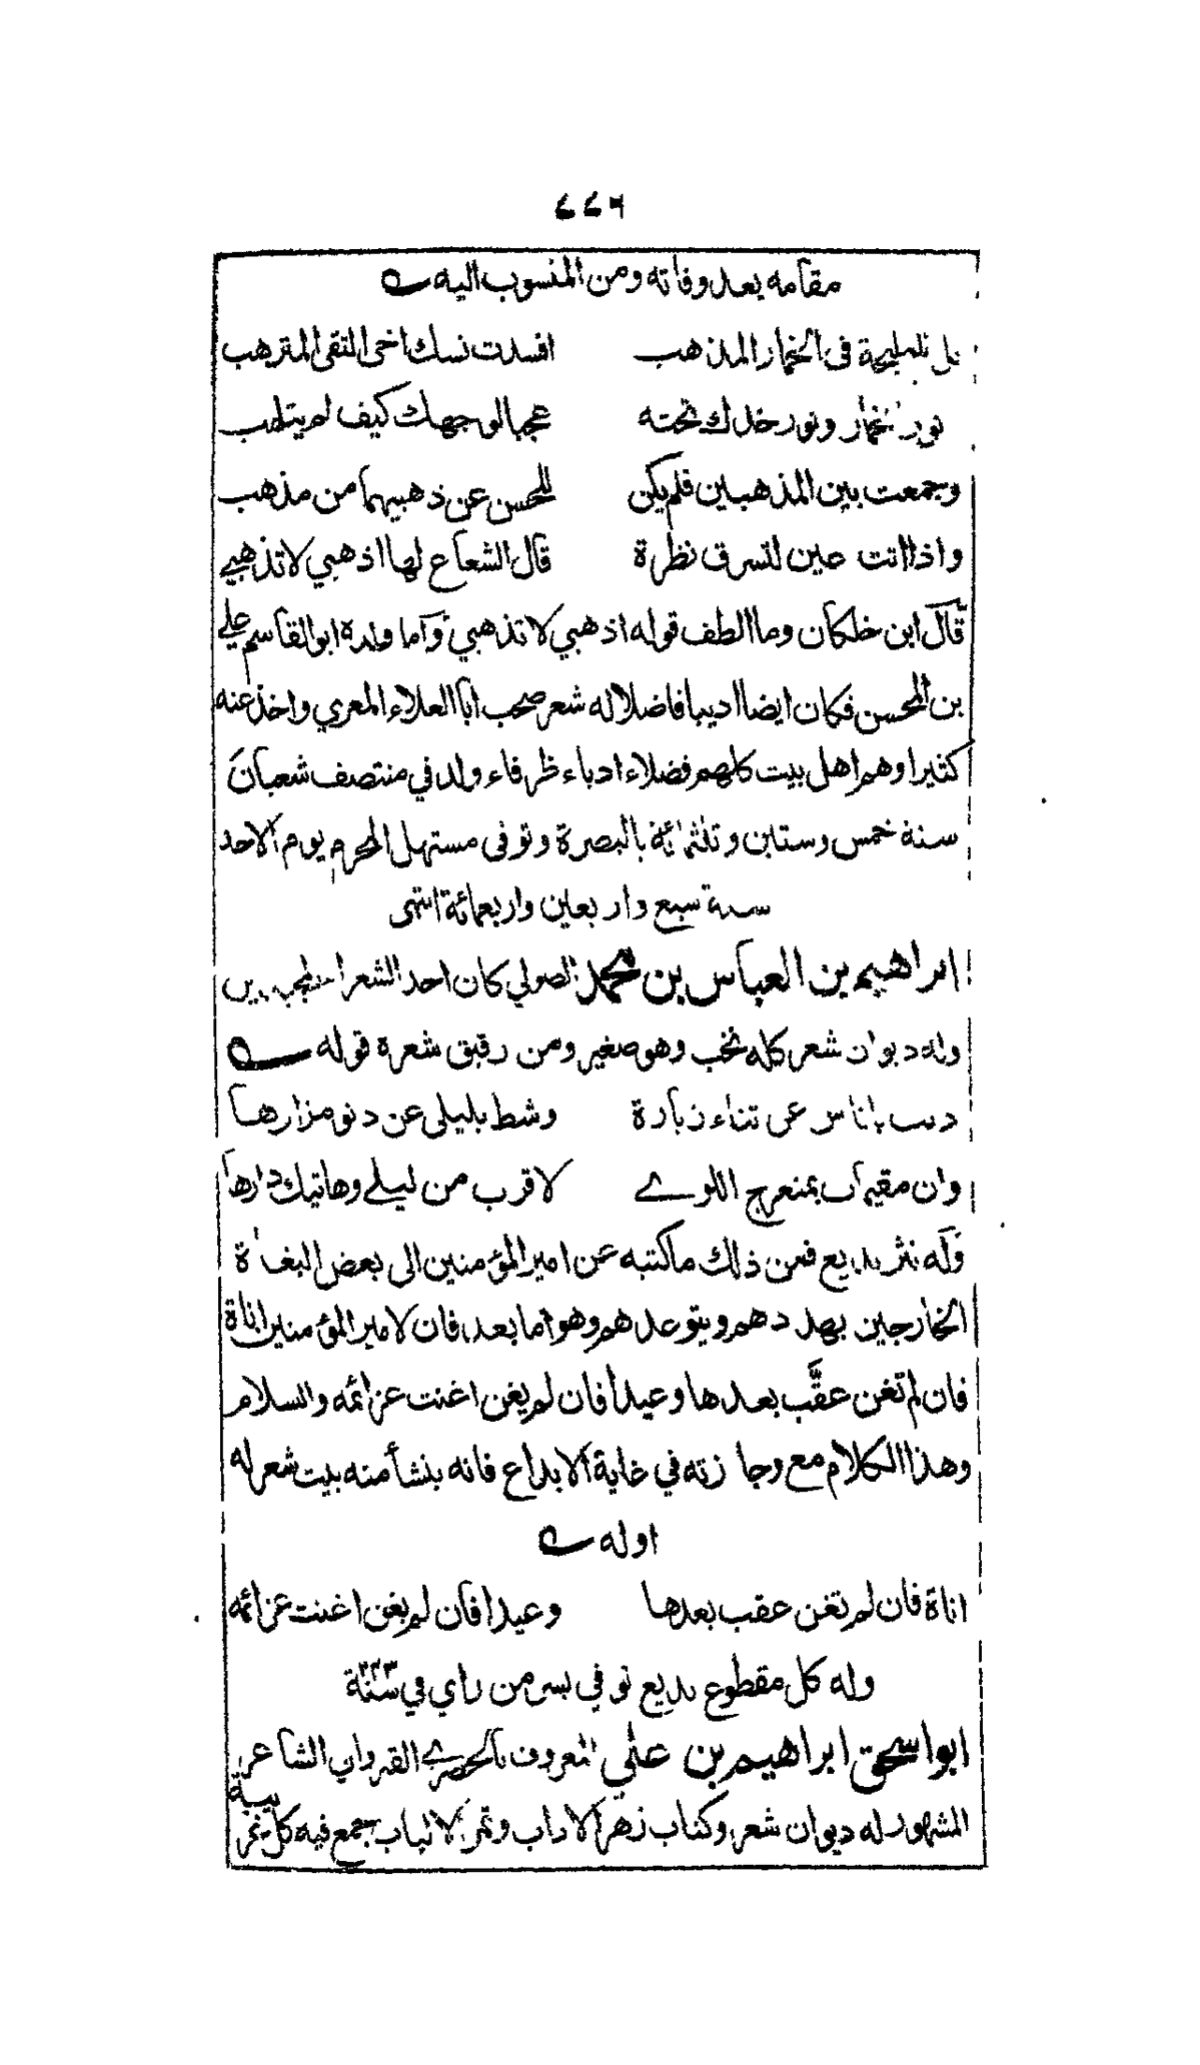 ٧٧٩
مقامه بعد وفاته ومن المنسوب اليه
قل للمليحة فى الخمار المذهب افسدت نسك اخى التقى المترهب
نور الخمار ونور خدك تحته عجبا لوجهك كيف لم يتلهب
وجمعت بين المذهبين فلم يكن للحسن عن ذهبيهما من مذهب
واذا اتت عين لتسرق نظرة قال الشعاع لها اذهبي لا تذهبي
قال ابن خلكان وما الطف قوله اذهبي لا تذهبي واما ولده ابو القاسم علي
بن المحسن فكان ايضا اديبا فاضلا له شعر صحب ابا العلاء المعري واخذ عنه
كثيرا وهم اهل بيت كلهم فضلاء ادباء ظرفاء ولد في منتصف شعبان
سنة خمس وستين وثلثمائة بالبصرة وتوفى مستهل المحرم يوم الاحد
سنة سبع واربعين واربعمائة انتهى
ابراهيم بن العباس بن محمد الصولي كان احد الشعراء المجيدين
وله ديوان شعر كله نخب وهو صغير ومن رقيق شعرة قوله
دنت باناس عن تناء زيارة وشط بليلى عن دنو مزارها
وان مقيمات بمنعرج اللوے لاقرب من ليلے وهاتيك دارها
وله نثر بديع فمن ذلك ما كتبه عن امير المؤمنين الى بعض البغاة
الخارجين يهددهم ويتوعدهم وهو اما بعد فان لامير المؤمنين اناة
فان لم تغن عقَّب بعدها وعيدا فان لم يغن اغنت عزائمه والسلام
وهذا الكلام مع وجازته في غاية الابداع فانه ينشأ منه بيت شعر له
اوله
اناة فان لم تغن عقب بعدها وعيدا فان لم يغن اغنت عزائمه
وله كل مقطوع بديع توفي بسر من راي في سنة ٢٤٣
ابو اسحق ابراهيم بن علي المعروف بالحصرے القيرواني الشاعر
المشهور له ديوان شعر وكتاب زهر الاداب وثمر الالباب جمع فيه كل غريبة